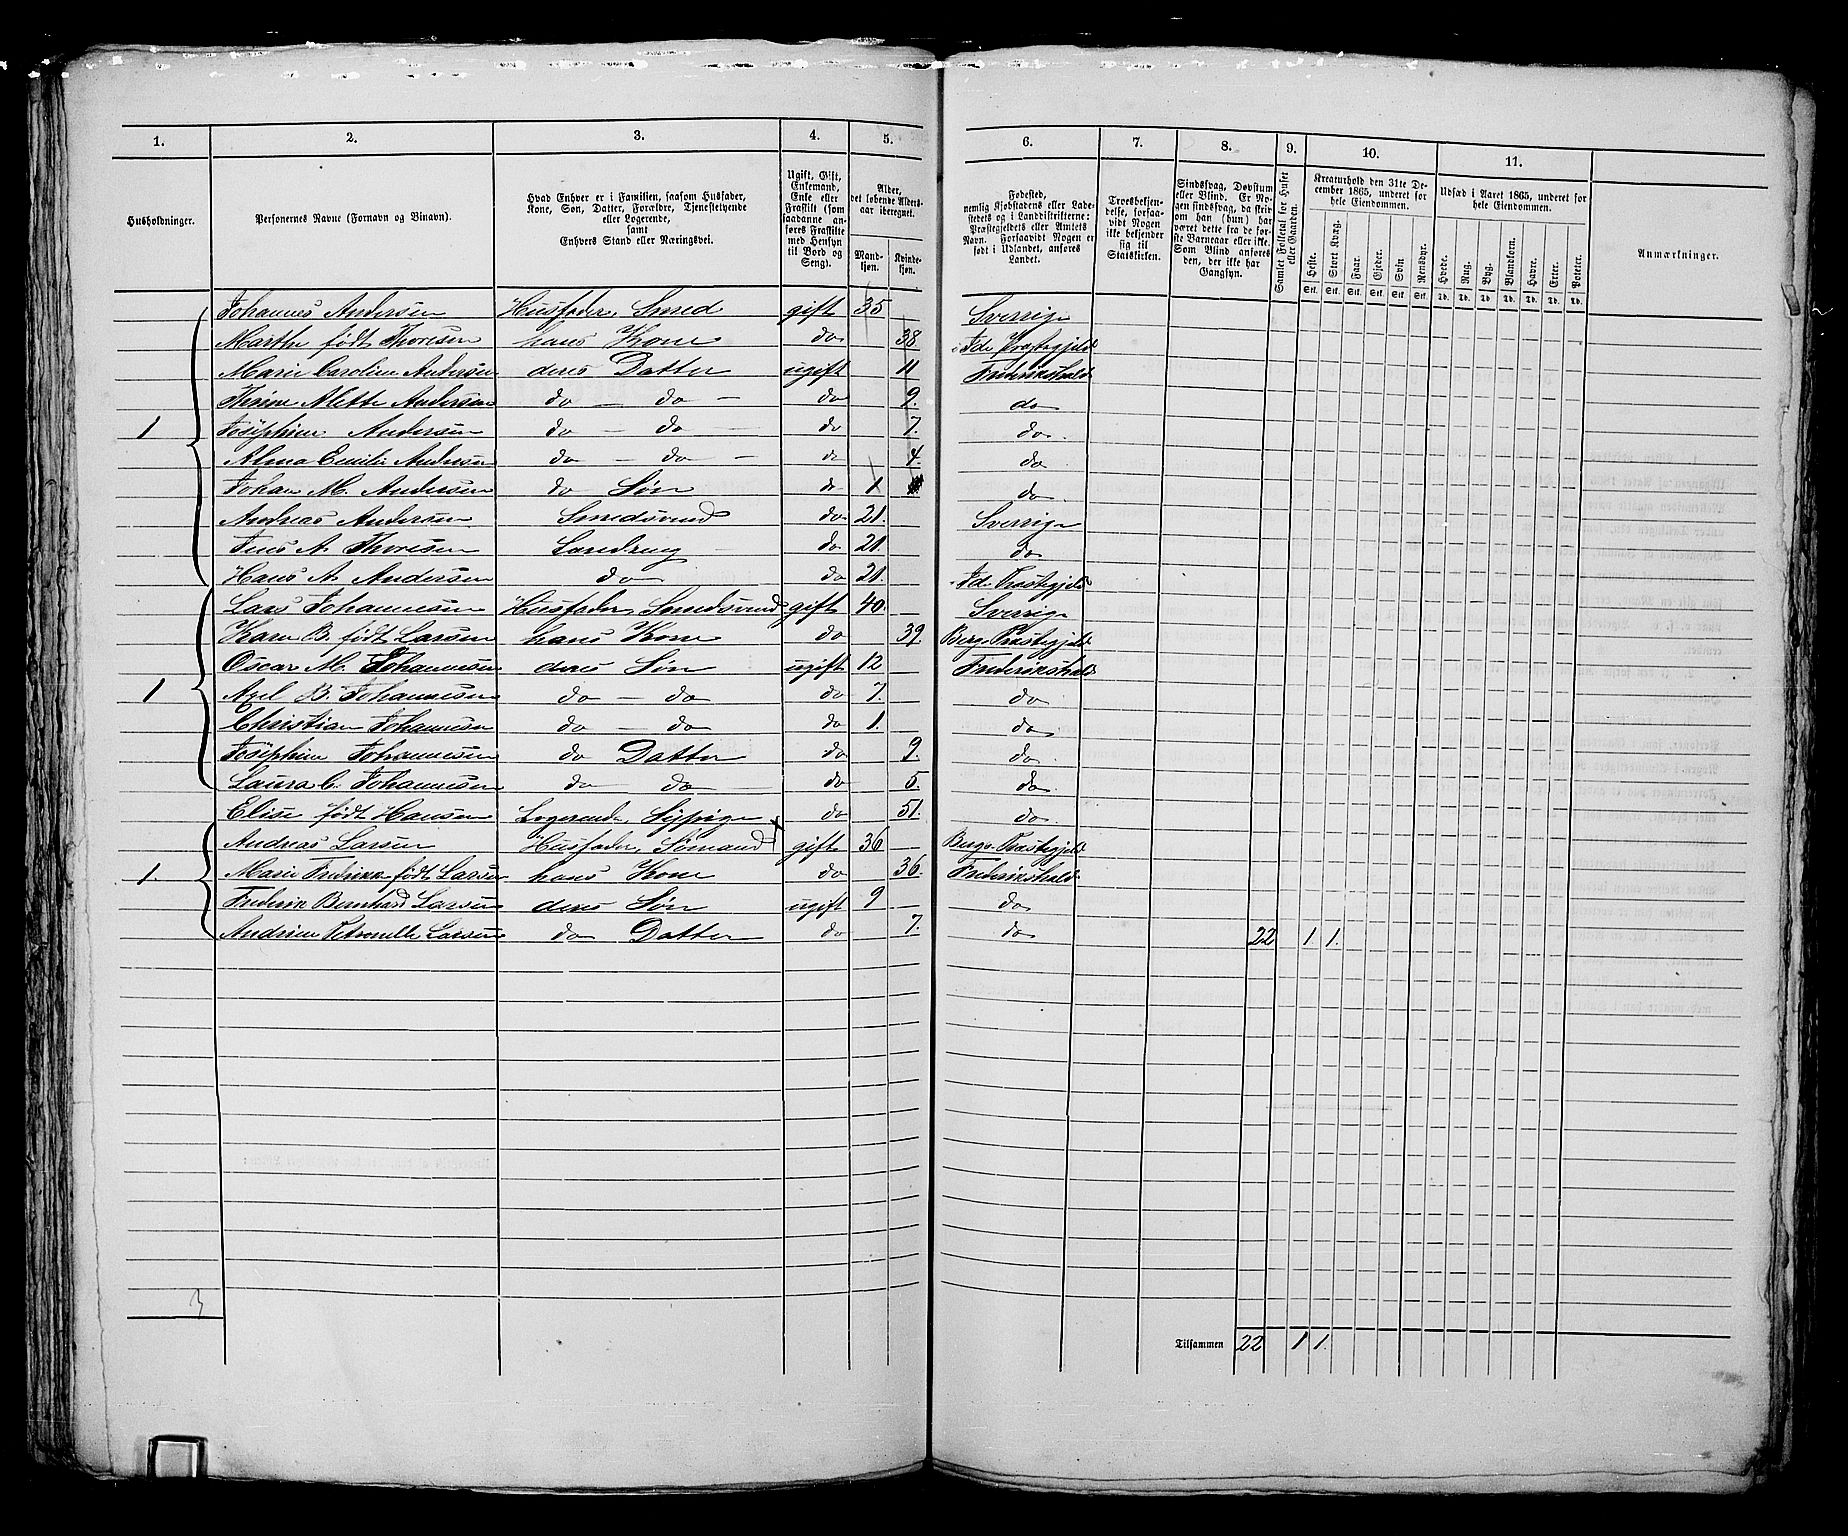 1. 2. 3. 4. 5. 6. 7. 8. 9. 10. 11.
Husholdninger. Personernes Navne (Fornavn og Binavn). Hvad Enhver er i Familien, saasom Husfader, Kone, Søn, Datter, Forældre, Tjenestetyende eller Logerende, samt Enhvers Stand eller Næringsvei. Ugift, Gift, Enkemand, Enke eller Fraskilt (som saadanne anføres Fraskilte med Hensyn til Bord og Seng). Alder, det løbende Alders-aar iberegnet. Mandkjøn. Kvindekjøn. Fødested, nemlig Kjøbstadens eller Ladestedets og i Landdistrikterne: Præstegjeldets eller Amtets Navn. Forsaavidt Nogen er født i Udlandet, anføres Landet. Troesbekjendelse, forsaavidt Nogen ikke bekjender sig til Statskirken. Sindssvag, Døvstum eller Blind. Er Nogen sindssvag, da skrives om han (hun) har været dette fra de første Barneaar eller ikke. Som Blind anføres den, der ikke har Gangsyn. Samlet Folketal for Huset eller Gaarden. Kreaturhold den 31te December 1865, underet for hele Eiendommen. Heste. Stort Kvæg. Faar. Gjeder. Svin Rensdyr. Udsæd i Aaret 1865, underet for hele Eiendommen. Hvede. Rug. Byg. Blandkorn. Havre. Erter. Poteter. Anmærkninger.
Stk. Stk. Stk. Stk. Stk. Stk. Td. Td. Td. Td. Td. Td. Td.
Johannes Andersen Husfader, Smed gift 35 Sverrige
Marthe født Thoresen hans Kone do 38 Ide Præstegjeld
Marie Caroline Andersen deres Datter ugift 11 Frederikshald
Thrine Mette Andersen do — do — do 9. do
1 Josephine Andersen do — do do 7. do
Alma Emilie Andersen do — do — do 4. do
Johan M. Andersen do Søn do 1 do
Andreas Andersen Smedsvend do 21. Sverrige
Jens A. Thoresen do 21. do
Hans A. Andersen do do 21. Ide Præstegjeld
Lars Johannesen Husfader, Smedsvend gift 40. Sverrige
Karen B. født Larsen hans Kone do 39. Bergs Præstegjeld
Oscar M. Johannesen deres Søn ugift 12 Frederikshald
1 Axel B. Johannesen do — do do 7. do
Christian Johannesen do — do do 1. do
Josephine Johannesen do Datter do 9. do
Laura C. Johannesen do do do 5. do
Elise født Hansen Logerende, Sypige do 51. do
Andreas Larsen Husfader, Sømand gift 36 Bergs Præstegjeld
1. Marie Fredrikke født Larsen hans Kone do 36. Frederikshald
Frederik Bernhard Larsen deres Søn ugift 9 do
Andrine Petronelle Larsen do Datter do 7. do 22 1 1.
3
Tilsammen 22 1 1.